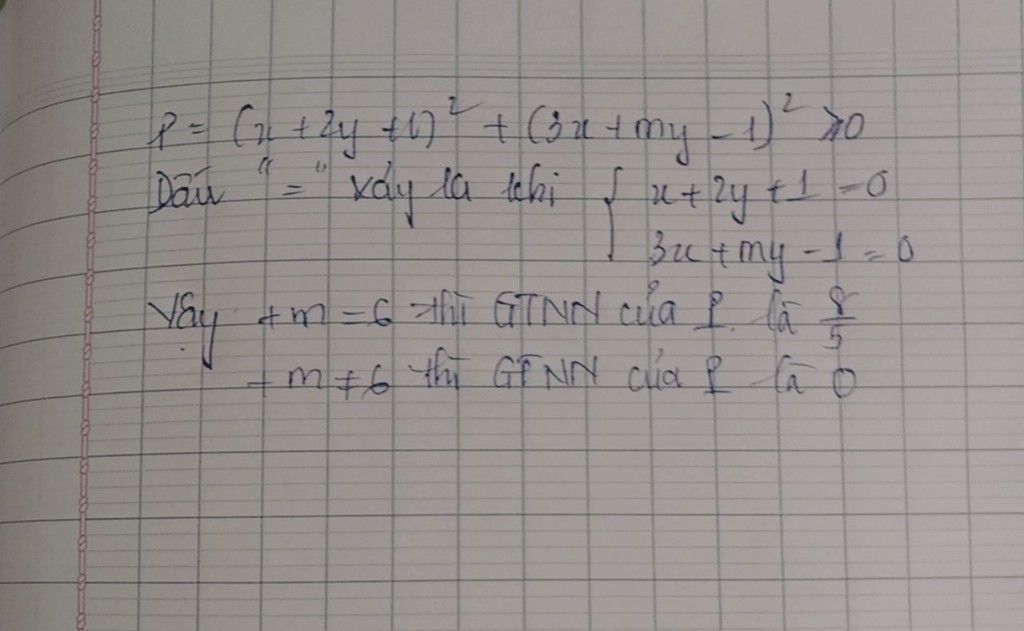 P = (x + 2y + 1)² + (3x + my - 1)² ≥ 0
Dấu "=" xảy ra khi { x + 2y + 1 = 0
3x + my - 1 = 0
Vậy + m = 6 thì GTNN của P là 8/5
+ m ≠ 6 thì GTNN của P là 0